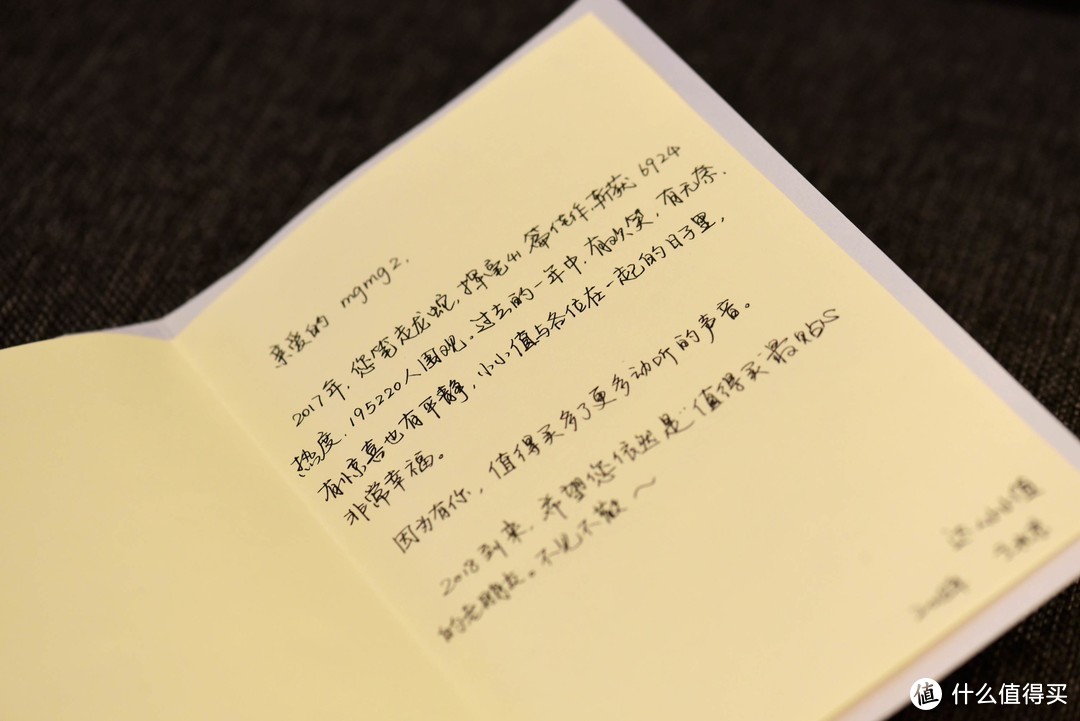 亲爱的 mgmg2,
2017年,您笔走龙蛇,挥毫41篇佳作斩获6924
热度,195220人围观。过去的一年中,有欢笑,有无奈,
有惊喜也有平静,小小值与各位在一起的日子里,
非常幸福。
因为有你,值得买多了更多动听的声音。
2018到来,希望您依然是"值得买"最贴心
的老朋友。不见不散~
值 什么值得买